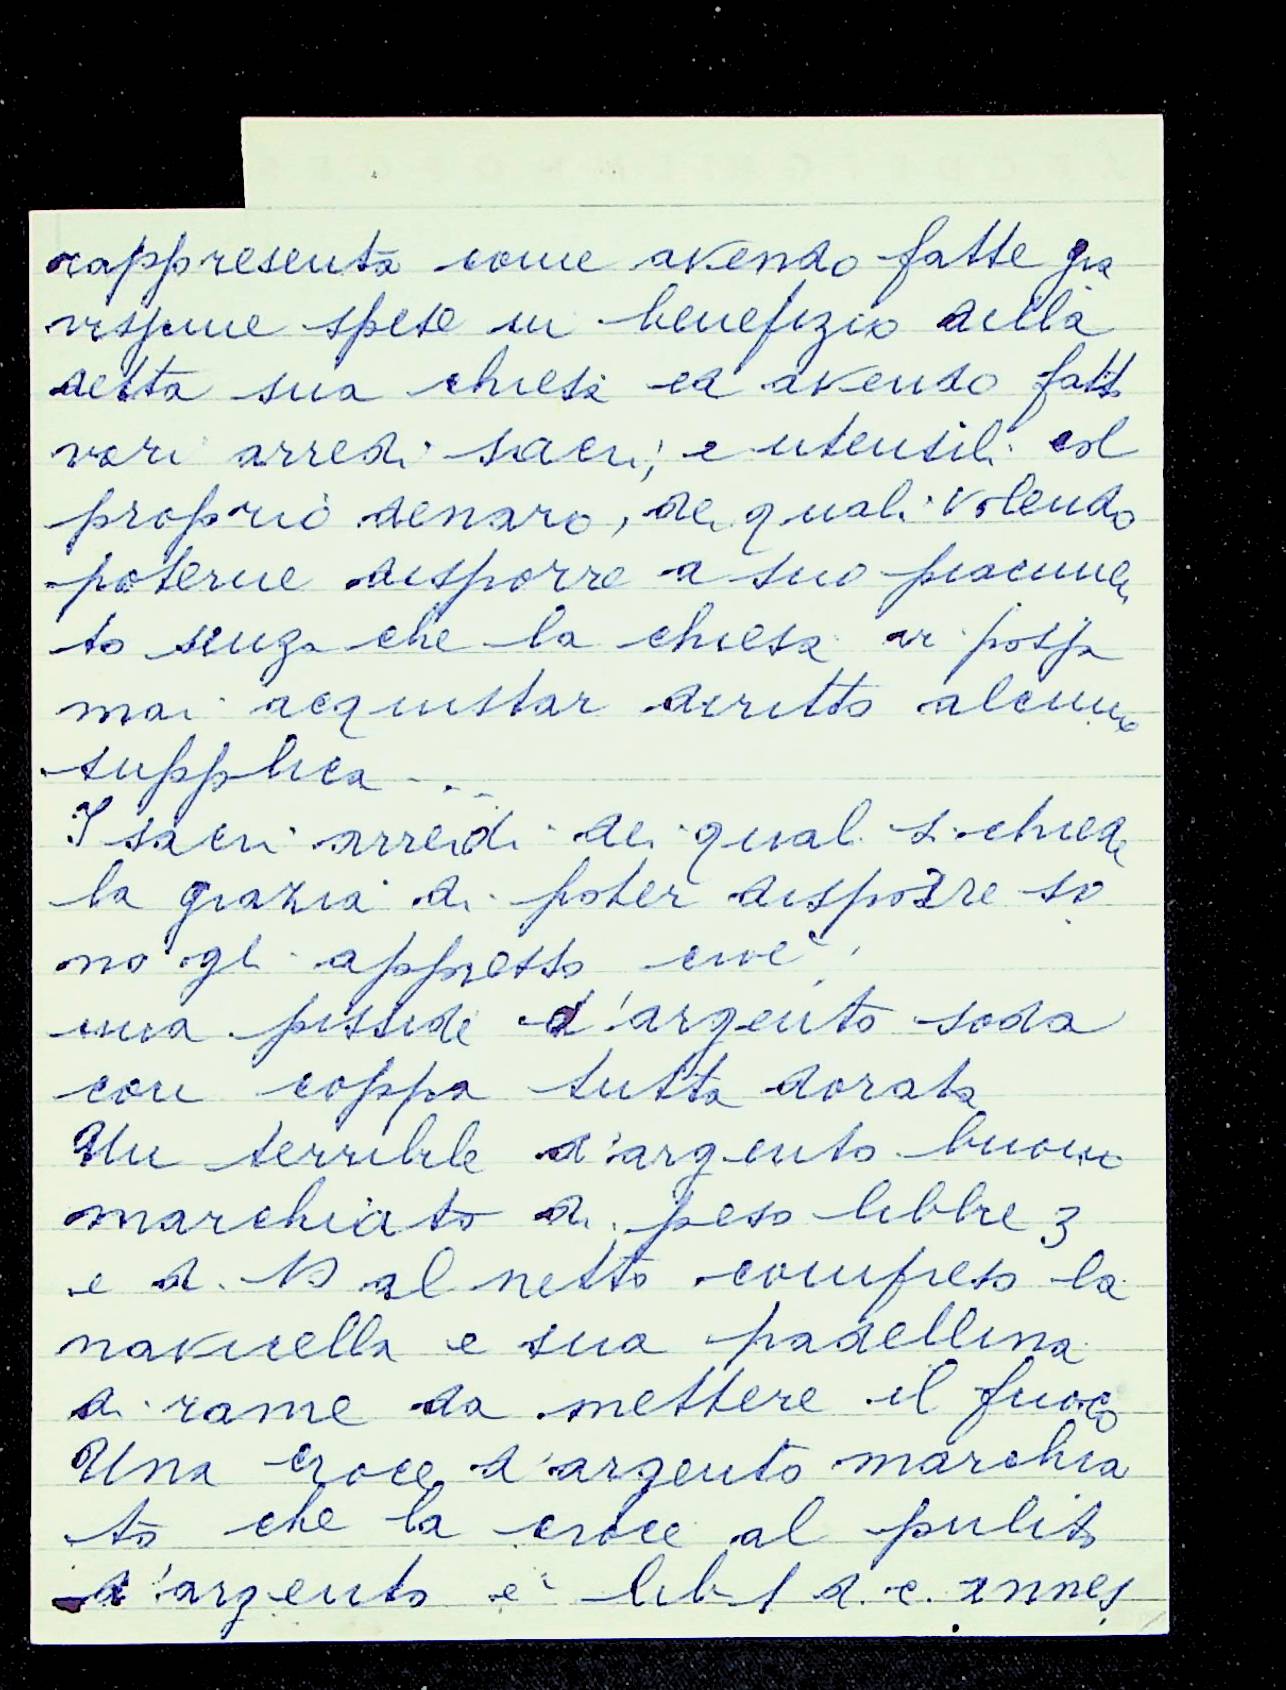 rappresenta come avendo fatte gra
vissime spese in benefizio della
detta sua chiesa ed avendo fatti
vari arredi sacri, e utensili col
proprio denaro, dei quali volendo
poterne disporre a suo piacimen
to senza che la chiesa vi possa
mai acquistar diritto alcuno
supplica ...
I sacri arredi dei quali si chiede
la grazia di poter disporre so
no gli appresso cioè:
una pisside d'argento soda
con coppa tutta dorata
Un terribile d'argento buono
marchiato di peso libbre 3
e d. al netto compreso la
navicella e sua padellina
di rame da mettere il fuoco
Una croce d'argento marchia
to che la croce al pulito
d'argento è lib 1 d. e. annes